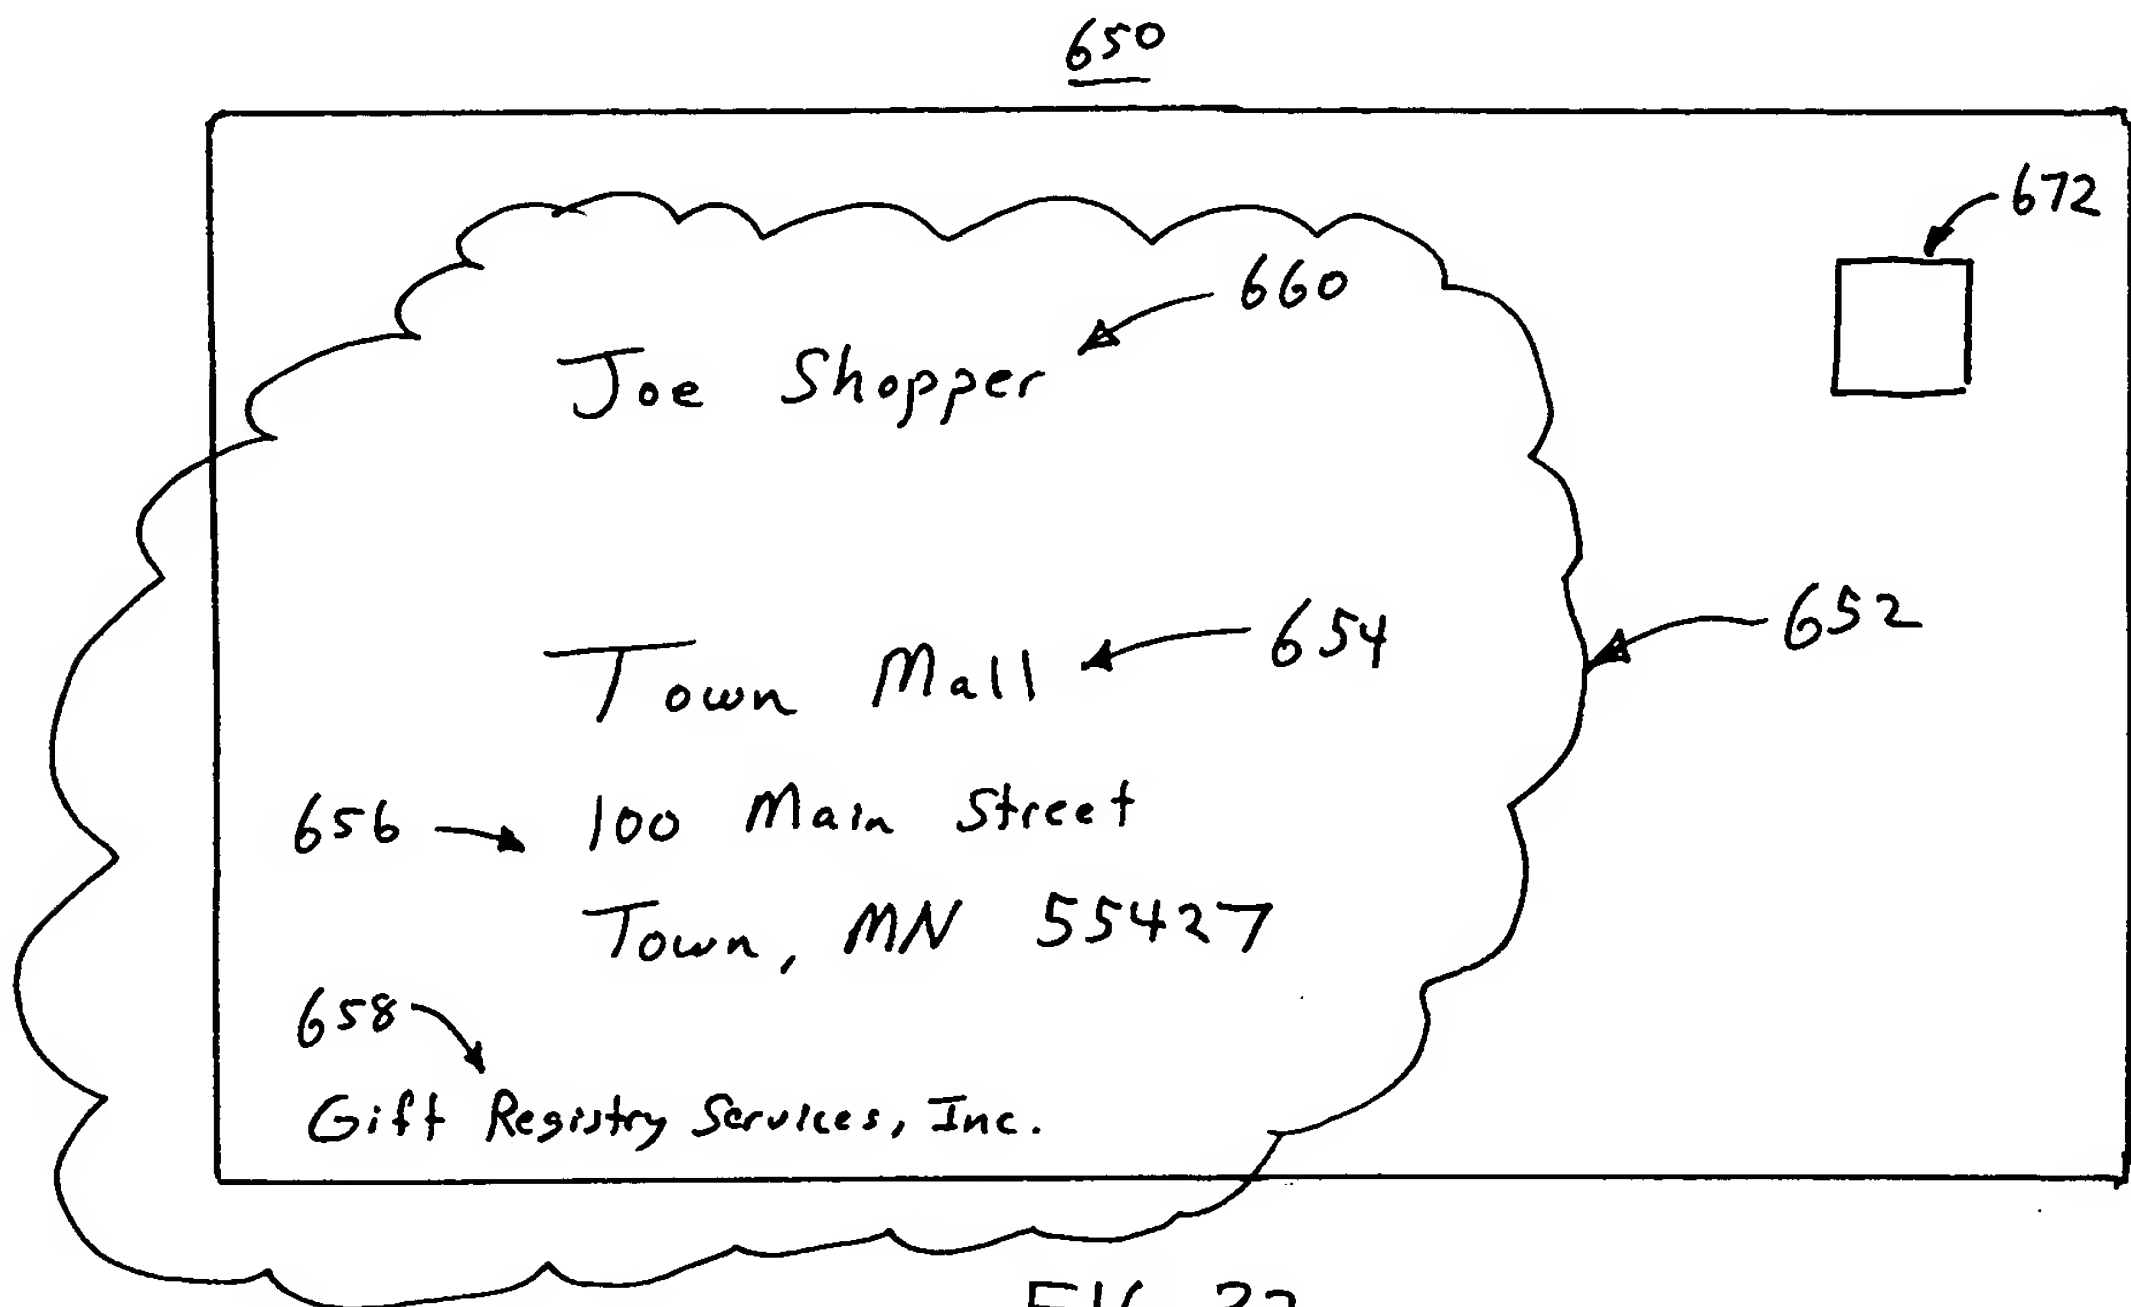 650
672
660
Joe Shopper
Town Mall 654
652
656 100 Main Street
Town, MN 55427
658
Gift Registry Services, Inc.